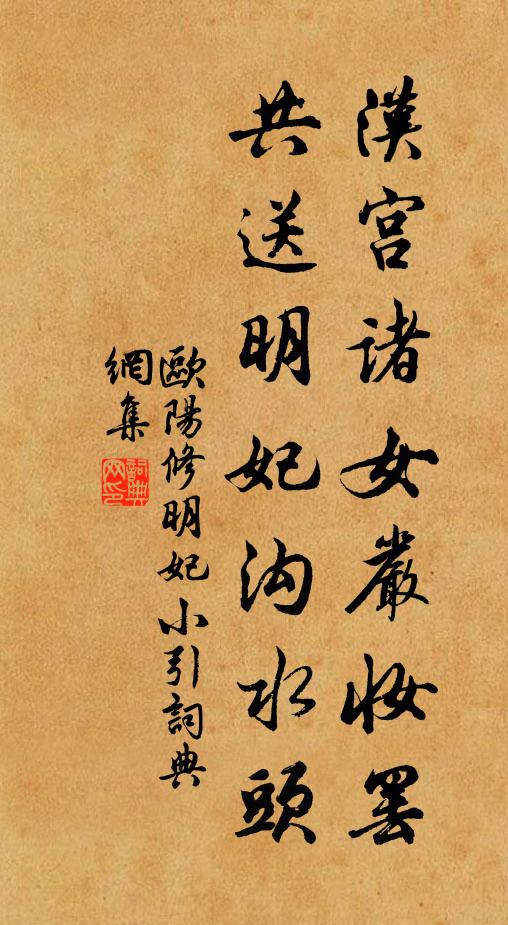 漢宮諸女嚴妝罷
共送明妃沟水頭
歐陽修明妃小引詞典
網集
詞典
网印